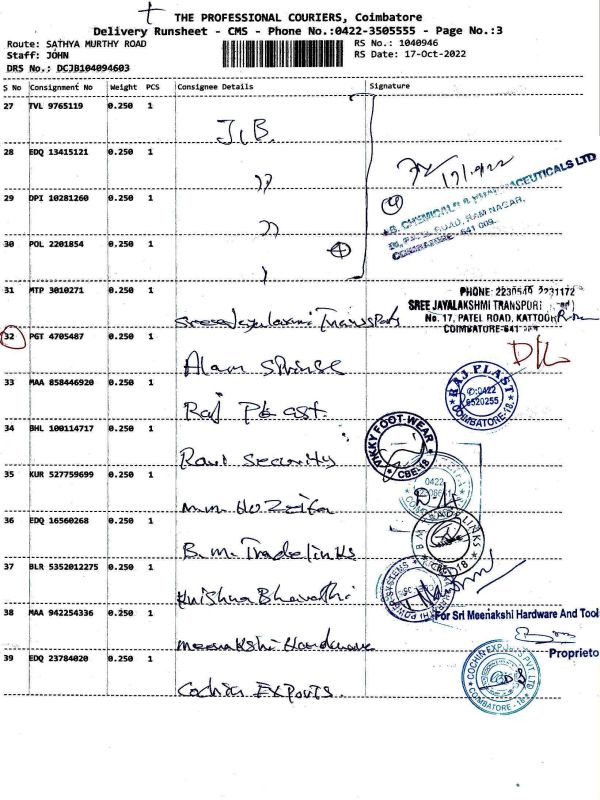 THE PROFESSIONAL COURIERS, Coimbatore
Delivery Runsheet - CMS - Phone No.:0422-3505555 - Page No.:3
Route: SATHYA MURTHY ROAD
RS No.: 1040946
Staff: JOHN
RS Date: 17-Oct-2022
DRS No.: DCJB104094603
S No Consignment No Weight PCS Consignee Details Signature
27 TVL 9765119 0.250 1
J.B.
28 EDQ 13415121 0.250 1 ))
17/10/22
29 DPI 10281260 0.250 1 ))
4
30 POL 2201854 0.250 1 )
4
31 MTP 3010271 0.250 1
PHONE: 2230540 2231172
SREE JAYALAKSHMI TRANSPORT
No. 17, PATEL ROAD, KATTOOR
COIMBATORE-641
32 PGT 4705487 0.250 1
Alam
33 MAA 858446920 0.250 1
Raj Plast.
RAJ PLAST
0422
6520255
COIMBATORE-18.
34 BHL 100114717 0.250 1
Ravi Security
NAKKY FOOT-WEAR
CBE-18
35 KUR 527759699 0.250 1
0422
36 EDQ 16560268 0.250 1
B.M. Tradelinks
B M TRADE LINKS
CBE-18
37 BLR 5352012275 0.250 1
Krishna Bharathi
POWER SYSTEMS
38 MAA 942254336 0.250 1
Meenakshi Hardware
For Sri Meenakshi Hardware And Tool
Proprieto
39 EDQ 23784020 0.250 1
Cochin Exports.
COCHIN EXPORTS PVT LTD
COIMBATORE - 18